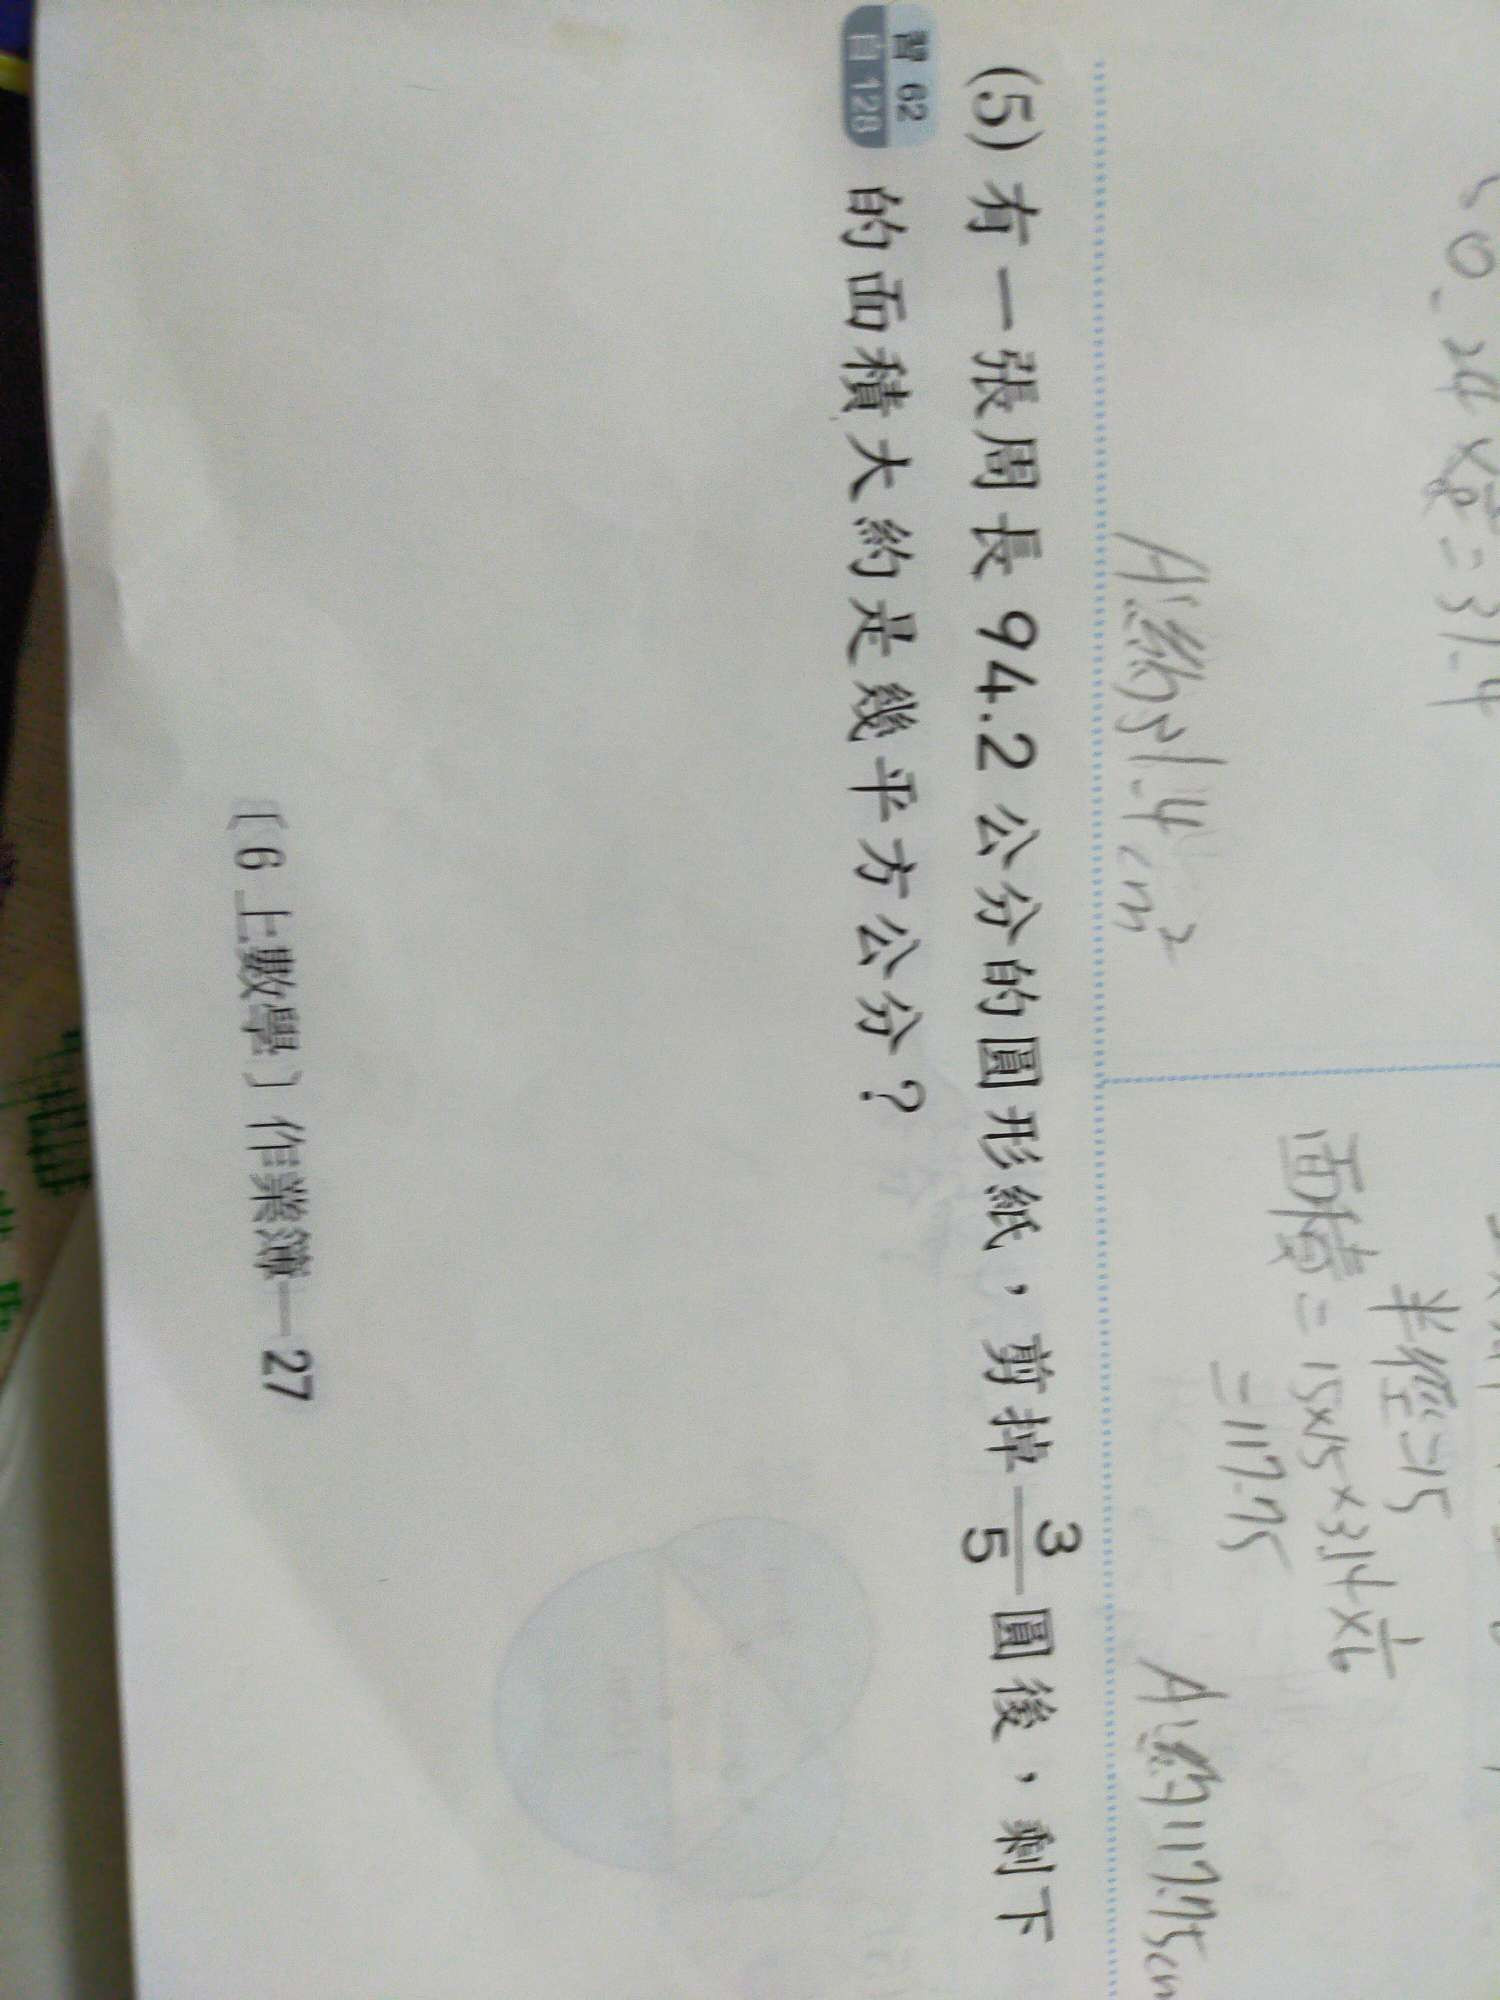 0.24×
=31.4
A:約31.4cm²
半徑=15
面積=15×15×3.14×1/6
=117.75
A:約117.75cm
(5) 有一張周長 94.2 公分的圓形紙，剪掉 3/5 圓後，剩下
習 62
自 128
的面積大約是幾平方公分？
〔6上數學〕作業簿—27